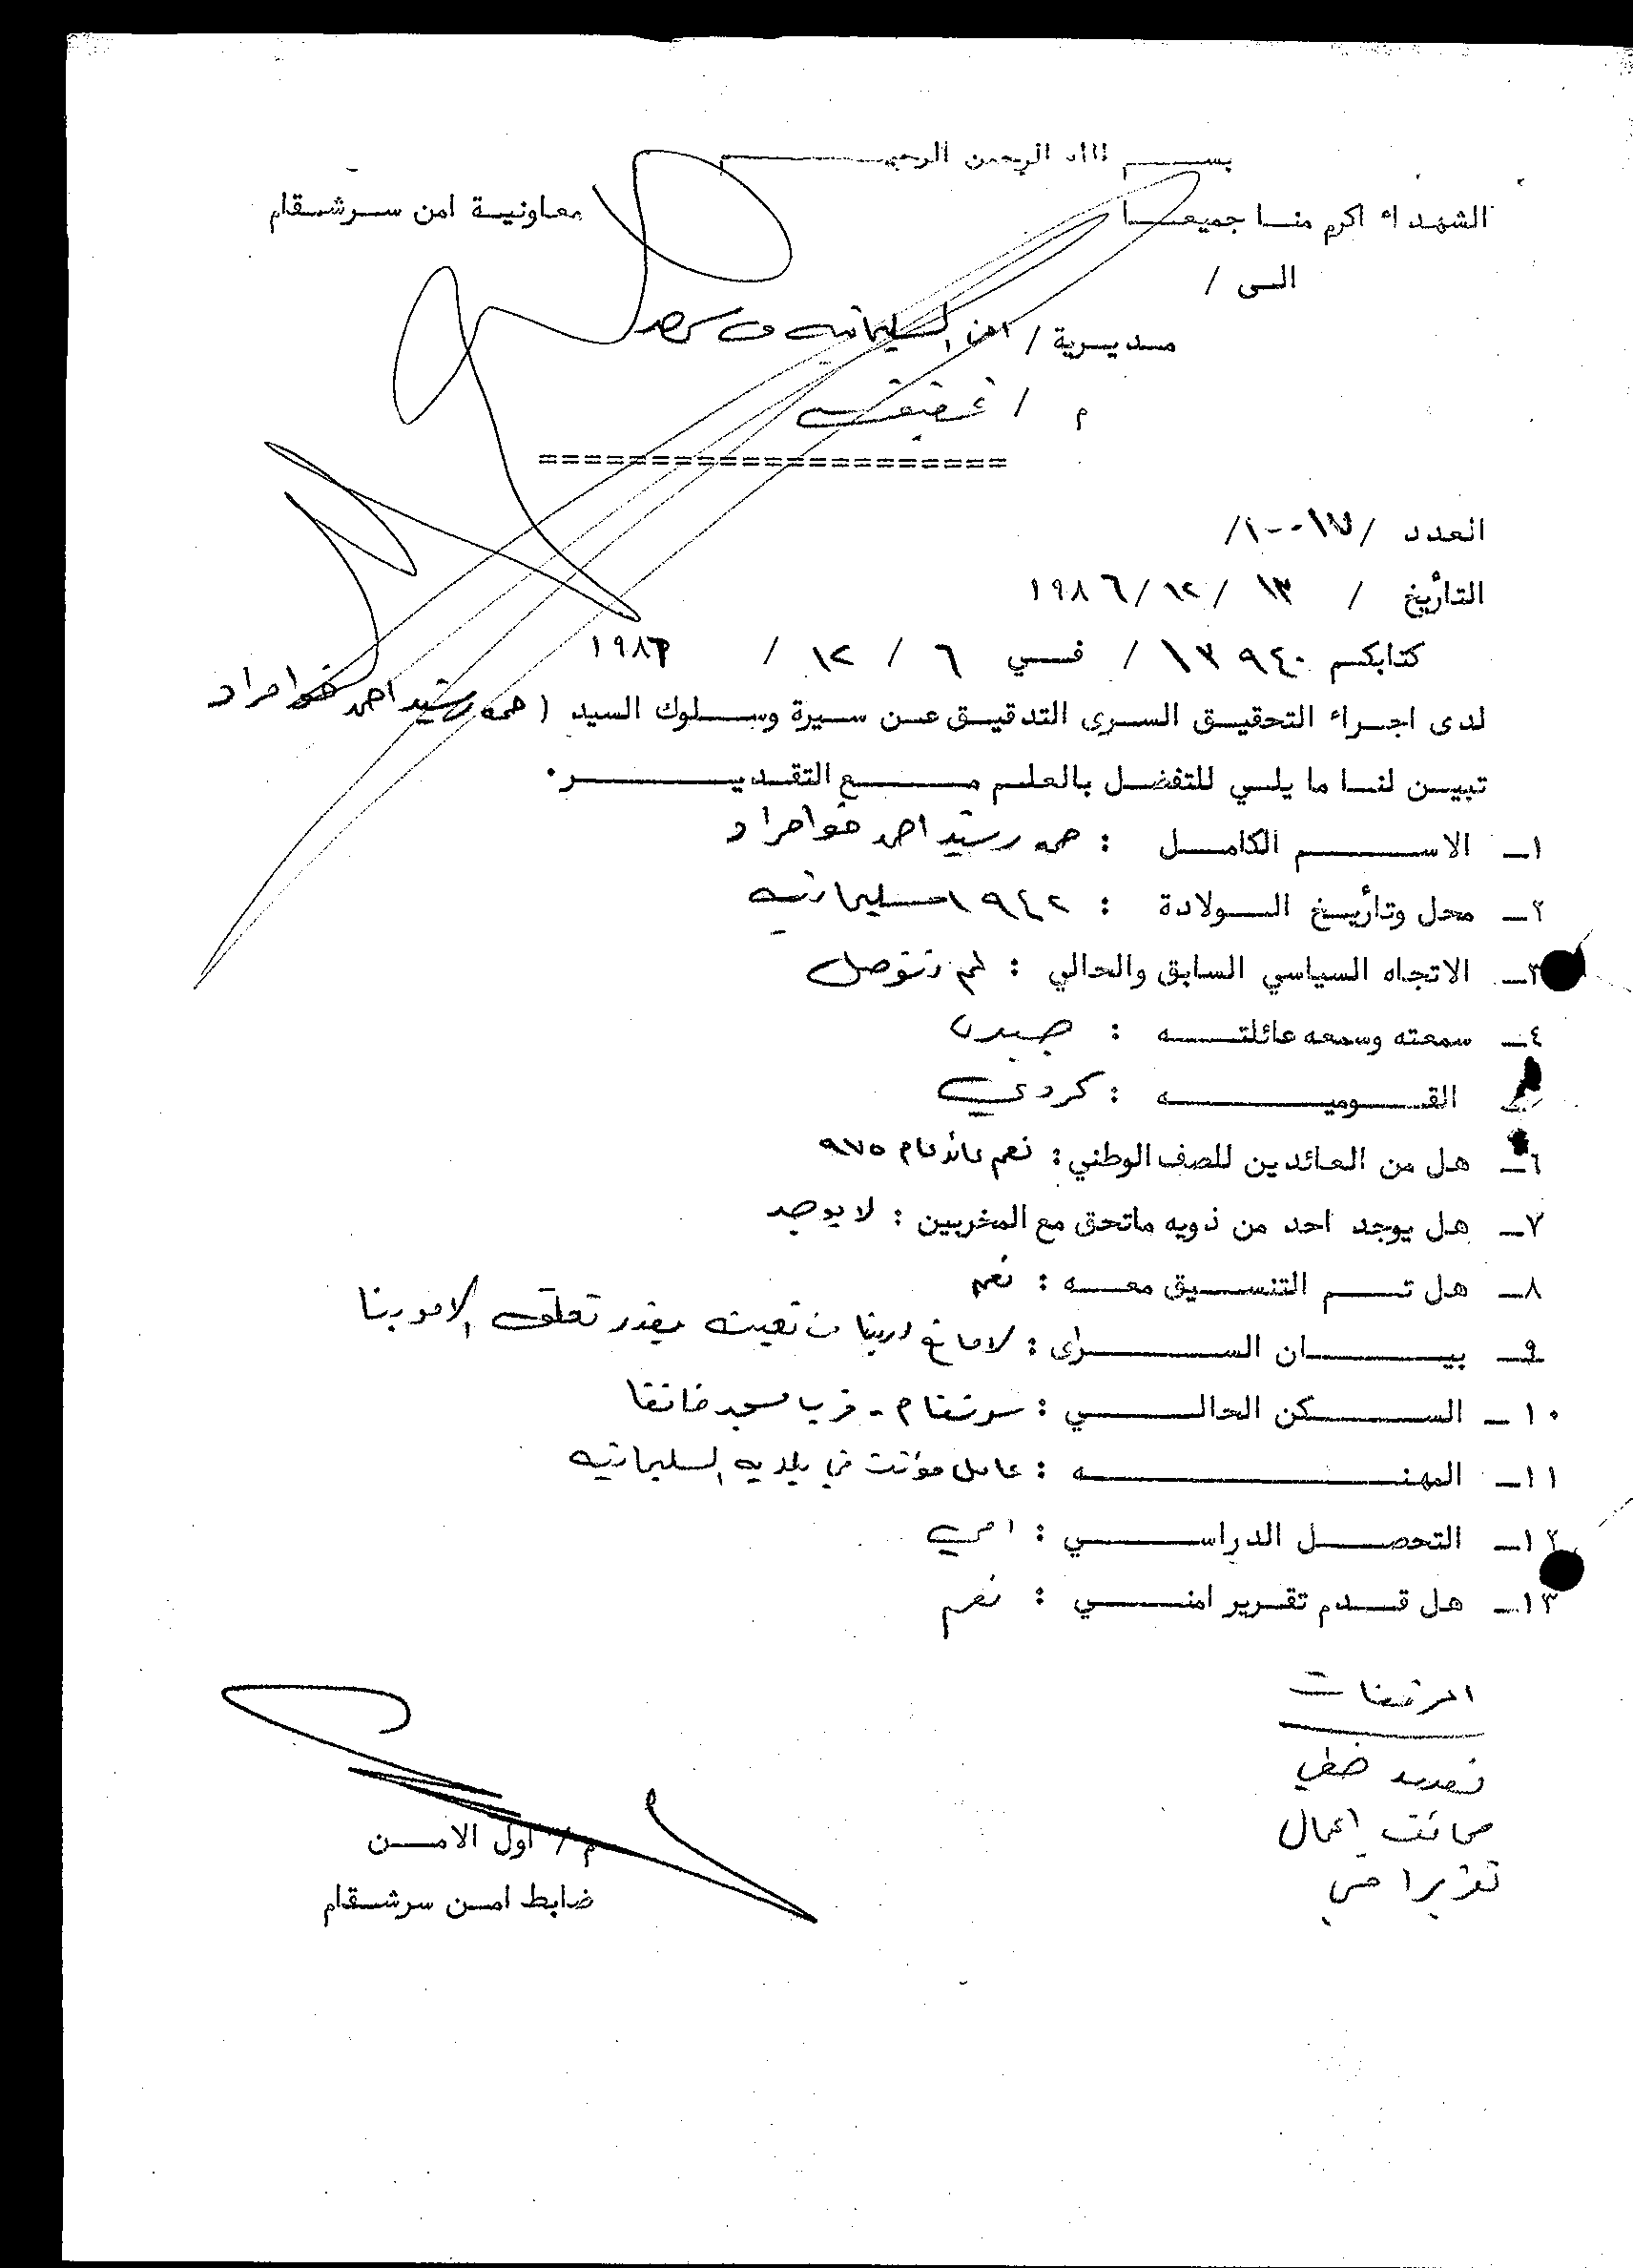 بسم الله الرحمن الرحيم
الشهداء اكرم منا جميعا
معاونية امن سرشقام
الى /
مديرية / امن السليمانيه
م /
====================
العدد / ١٠٠١٧ /
التأريخ / ١٣ / ١٢ / ١٩٨٦
كتابكم ١٣٩٤٠ / في ٦ / ١٢ / ١٩٨٦
لدى اجراء التحقيق السرى التدقيق عن سيرة وسلوك السيد ( حمه رشيد احمد خوامراد
تبين لنا ما يلي للتفضل بالعلم مع التقدير.
١ــ الاسم الكامل : حمه رشيد احمد خوامراد
٢ــ محل وتأريخ الولادة : ١٩٤٢ سليمانيه
٣ــ الاتجاه السياسي السابق والحالي : لم نتوصل
٤ــ سمعته وسمعه عائلته : جيدة
القوميه : كردي
٦ــ هل من العائدين للصف الوطني : نعم عائد عام ٩٧٥
٧ــ هل يوجد احد من ذويه ماتحق مع المخربين : لا يوجد
٨ــ هل تم التنسيق معه : نعم
٩ــ بيان السراى : لا مانع لدينا من تعينه بقدر تعلق الامر بنا
١٠ــ السكن الحالي : سرشقام - قرب مسجد خانقا
١١ــ المهنه : عامل مؤقت في بلديه السليمانيه
١٢ــ التحصل الدراسي : امي
١٣ــ هل قدم تقرير امني : نعم
المرفقات
تعهد خطي
صحائف اعمال
تقرير امني
م / اول الامن
ضابط امن سرشقام